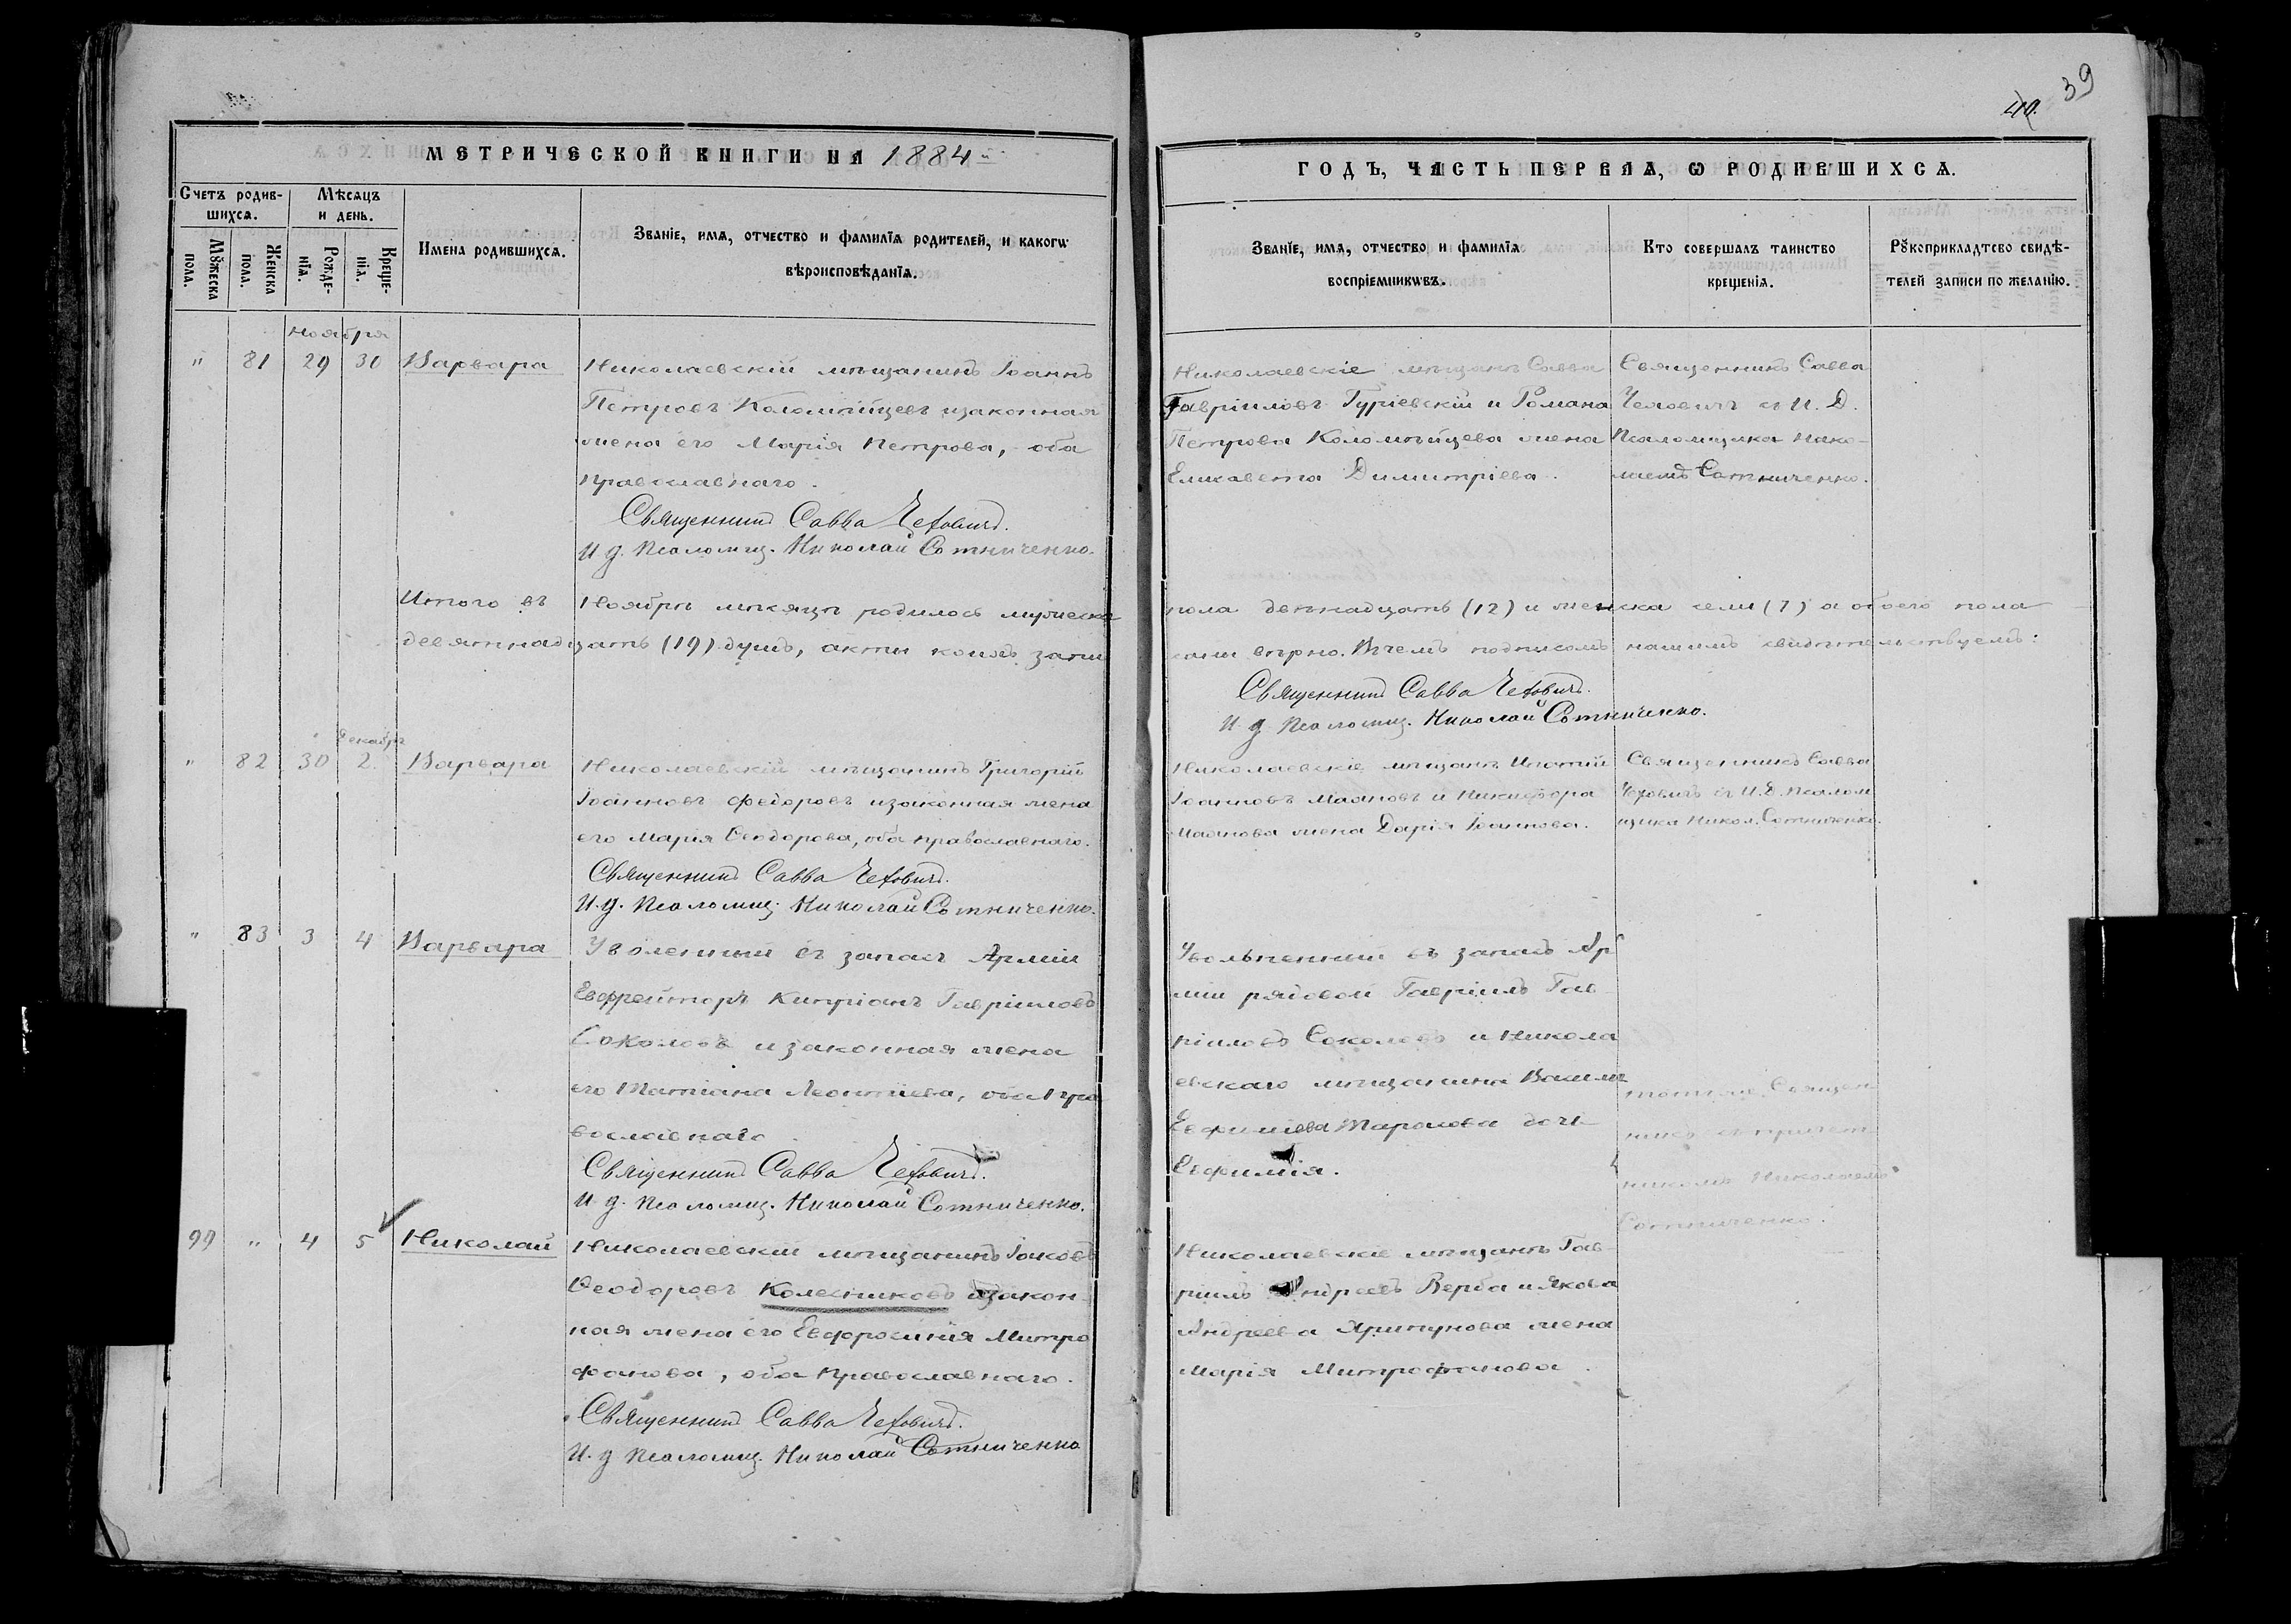 39
40.
МЕТРИЧЕСКОЙ КНИГИ НА 1884й
ГОДЪ, ЧАСТЬ ПЕРВАЯ, Ѡ РОДИВШИХСѦ.
Счетъ родив-
шихсѧ.
Мѣсяцъ
и день.
Мꙋжеска
пола.
Женска
пола.
Рожде-
нїѧ.
Креще-
нїѧ.
Имена родившихсѧ.
Званїе, имѧ, отчество и фамилїѧ родителей, и какогѡ
вѣроисповѣданїѧ.
Званїе, имѧ, отчество и фамилїѧ
воспрїемникѡвъ.
Кто совершалъ таинство
крещенїѧ.
Рꙋкоприкладтсво свидѣ-
телей записи по желанїю.
ноября
" 81 29 30 Варвара
Николаевскій мѣщанинъ Іоаннъ
Петровъ Коломѣйцевъ изаконная
жена его Марія Петрова, оба
православнаго.
Священникъ Савва Чеховичъ.
И д. Псаломщ. Николай Сотниченко.
Николаевскіе мѣщанъ Савва
Гавріиловъ Гуріевскій и Романа
Петрова Коломѣйцева жена
Елисавета Димитріева.
Священникъ Савва
Чеховичъ съ И. Д.
Псаломщика Нико-
лаемъ Сотниченко.
Итого въ Ноябрѣ мѣсяцѣ родилось мужеска
пола двѣнадцать (12) и женска семь (7) а обоего пола
девятнадцать (19) душъ, акты коихъ запи
саны вѣрно. Вчемъ подписомъ нашимъ свидѣтельствуемъ:
Священникъ Савва Чеховичъ.
И д. Псаломщ. Николай Сотниченко.
Декабрь
" 82 30 2. Варвара
Николаевскій мѣщанинъ Григорій
Іоанновъ Федоровъ изаконная жена
его Марія Ѳеодорова, оба православнаго.
Священникъ Савва Чеховичъ.
И.д. Псаломщ. Николай Сотниченко.
Николаевскіе мѣщанъ Игнатій
Іоанновъ и Никифора
жена Дарія Іоаннова.
Священникъ Савва
Чеховичъ съ И.Д. Псалом
щика Никол. Сотниченко.
" 83 3 4 Варвара
Уволенный въ запасъ Арміи
Евфрейторъ Кипріанъ Гавріиловъ
Соколовъ изаконная жена
его Татіана Леонтіева, оба пра
вославнаго
Священникъ Савва Чеховичъ.
И д. Псаломщ. Николай Сотниченко.
Увольненный въ запасъ Ар
міи рядовой Гавріилъ Гав-
ріиловъ Соколовъ и Никола
евскаго мѣщанина Василія
Евфиміева дочь
Евфимія.
тотъже Священ
никъ съ причет
никомъ Николаемъ
Сотниченко.
99 " 4 5 Николай
Николаевскій мѣщанинъ Іаковъ
Ѳеодоровъ Колесниковъ изакон-
ная жена его Евфросинія Митро
фанова, оба Православнаго.
Священникъ Савва Чеховичъ.
И. д Псаломщ. Николай Сотниченко
Николаевскіе мѣщанъ Гав-
ріилъ Андреевъ Верба и Якова
Андреева Хрипунова жена
Марія Митрофанова.